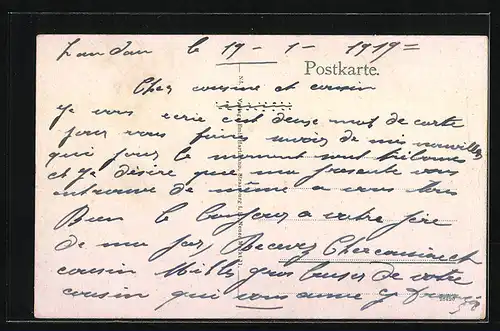 Landau le 19 - 1 - 1919 =
Postkarte.
Cher cousine et cousin
Je vous ecrie cest deuse mot de carte
pour vous faire savoir de mes nouvelles
qui pour le moment sont tres bonnes
et je désire que ma presente vous
entrouve de même a vous tous
Bien le bonjour a votre père
de ma part Recevez Cher cousine et
cousin Milles gros baiser de votre
cousin qui vous aime